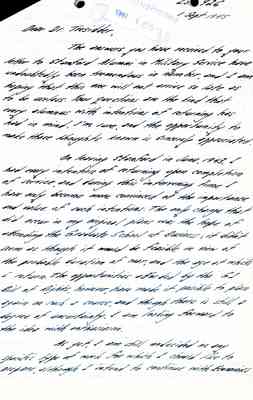 1 Sept. 1945
Dear Dr. Tresidder,
The answers you have received to your
letter to Stanford Alumni in Military Service have
undoubtedly been tremendous in number, and I am
hoping that this one will not arrive so late as
to be useless. Your questions are the kind that
every alumnus with intentions of returning has
had in mind, I'm sure, and the opportunity to
make those thoughts known is sincerely appreciated.
On leaving Stanford in June, 1942, I
had every intention of returning upon completion
of service, and during this intervening time I
have only become more convinced of the importance
and value of such intentions. The only change that
did occur in my original plans was the hope of
attending the Graduate School of Business; it didn't
seem as though it would be feasible in view of
the probable duration of war, and the age at which
I return. The opportunities afforded by the GI
Bill of Rights, however, have made it possible to plan
again on such a course, and though there is still a
degree of uncertainty, I am looking forward to
the idea with enthusiasm.
As yet, I am still undecided on any
specific type of work for which I should like to
prepare, although I intend to continue with Economics